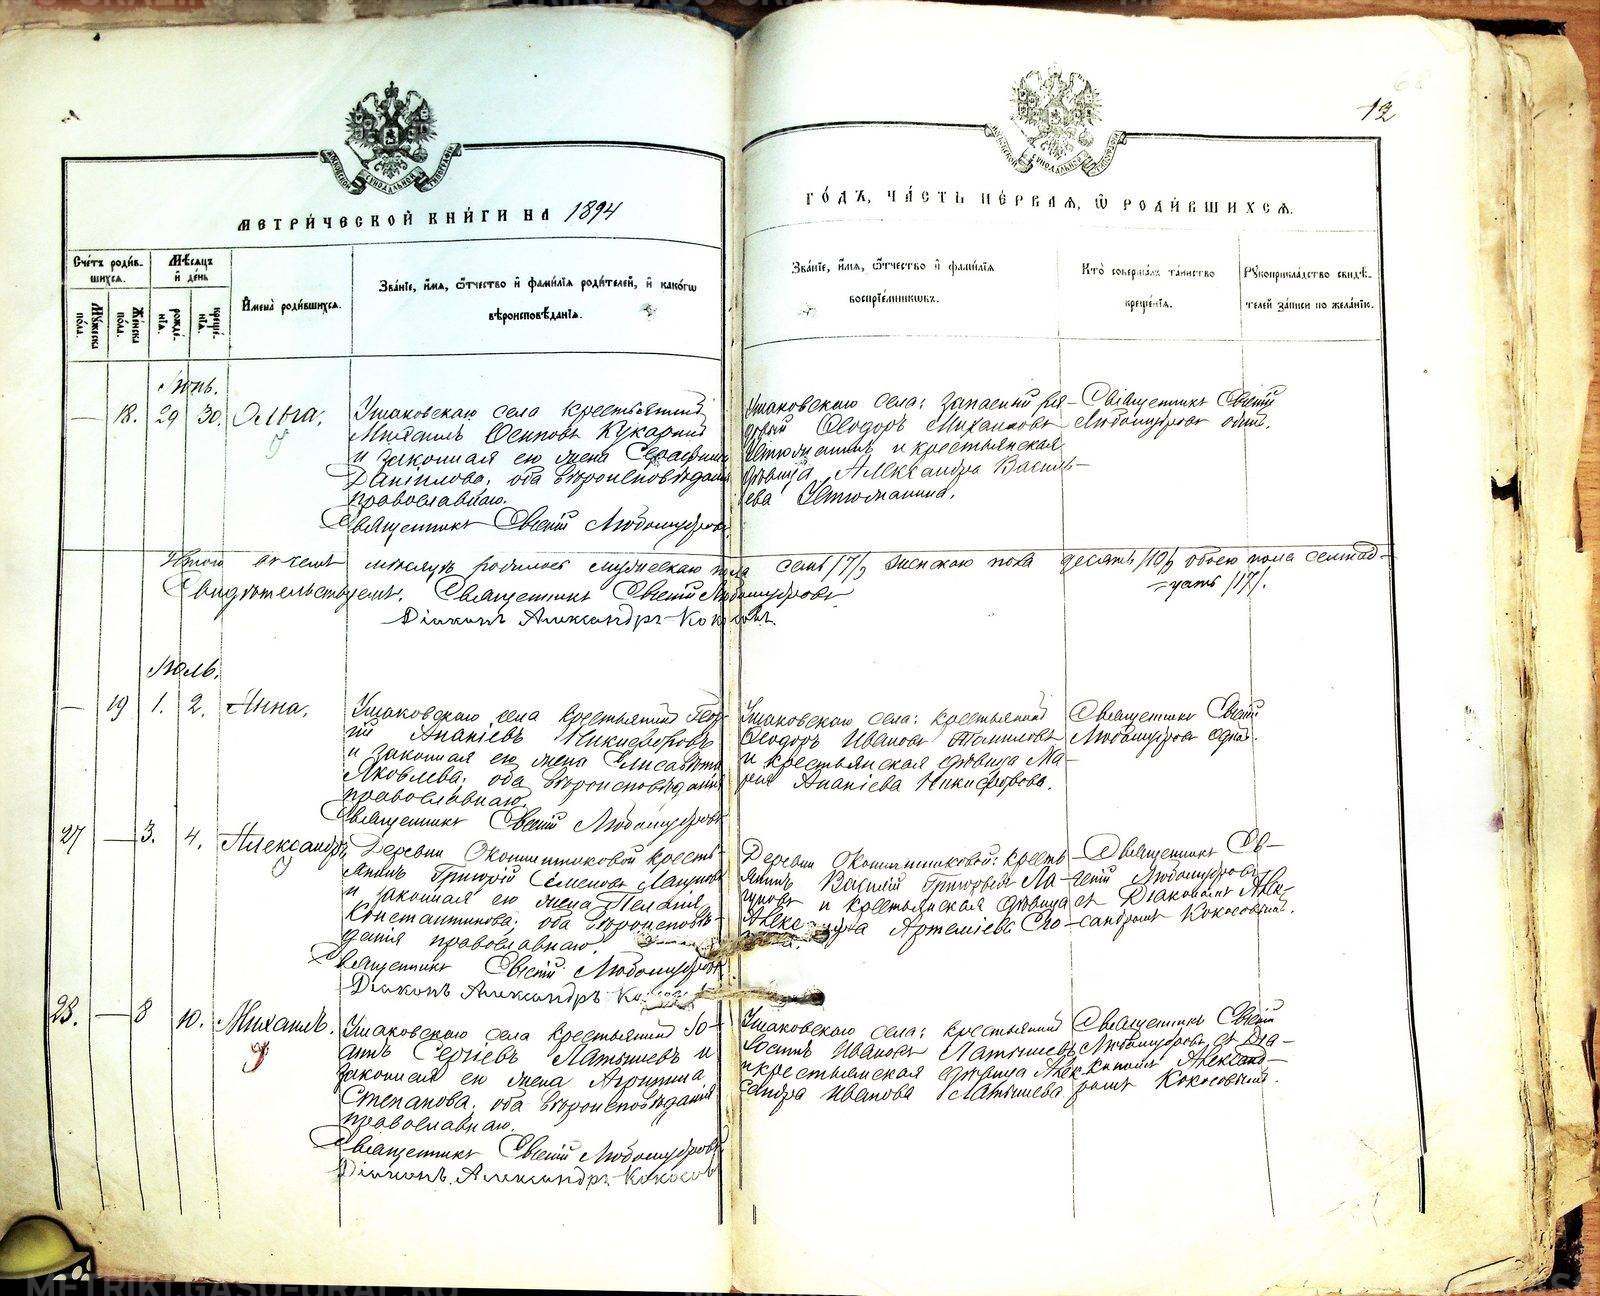 12
МЕТРИ́ЧЕСКОЙ КНИ́ГИ НА 1894
ГО́ДЪ, ЧА́СТЬ ПЕ́РВАЯ, Ѿ РОДИ́ВШИХСЯ.
Сче́тъ роди́в-
шихся.
Му́жеска по́ла.
Же́нска по́ла.
Мѣ́сяцъ
и҆ де́нь
рожде́-
нїя.
креще́-
нїя.
И҆мена̀ роди́вшихся.
Зва́нїе, и҆́мя, ѻ҆́тчество и҆ фами́лїя роди́телей, и҆ како́гѡ
вѣроисповѣ́данїя.
Зва́нїе, и҆́мя, ѻ҆́тчество и҆ фами́лїя
воспрїе́мниковъ.
Кто̀ соверша́лъ та́инство
креще́нїя.
Рꙋкоприкла́дство свидѣ́-
телей за́писи по жела́нїю.
Іюнь.
— 18. 29 30. Ольга.
Ушаковскаго села крестьянинъ
Михаилъ Осиповъ Кукаринъ
и законная его жена
Данилова, оба вѣроисповѣданія
православнаго.
Священникъ Евгеній Любомудровъ
Ушаковскаго села: запасный ря-
довый Ѳеодоръ Михаиловъ
Устюжанинъ и крестьянская
дѣвица Александра Василь-
ева Устюжанина.
Священникъ Евгеній
Любомудровъ одинъ.
Итого въ Іюнѣ мѣсяцѣ родилось мужескаго пола семь /7/, женскаго пола десять /10/, обоего пола семнад-
=цать /17/.
Свидѣтельствуемъ: Священникъ Евгеній Любомудровъ
Діаконъ Александръ Кокосовъ.
Іюль.
— 19 1. 2. Анна.
Ушаковскаго села крестьянинъ Геор-
гій Ананіевъ Никифоровъ
и законная его жена Елисавета
Яковлева, оба вѣроисповѣданія
православнаго.
Священникъ Евгеній Любомудровъ
Ушаковскаго села: крестьянинъ
Ѳеодоръ Ивановъ Томиловъ
и крестьянская дѣвица Ма-
рія Ананіева Никифорова.
Священникъ Евгеній
Любомудровъ одинъ.
27 — 3. 4. Александръ
Деревни Окониптиковой кресть-
янинъ Григорій Семеновъ Лагуновъ
и законная его жена Пелагія
Константинова, оба вѣроисповѣ-
данія православнаго.
Священникъ Евгеній Любомудровъ
Діаконъ Александръ
Деревни крестья-
янинъ Василій Григорьевъ Ла-
гуновъ и крестьянская дѣвица
Артеміева
Священникъ Ев-
геній Любомудровъ
съ Діакономъ Алек-
сандромъ Кокосовымъ.
28. — 8 10. Михаилъ.
Ушаковскаго села крестьянинъ Іо-
аннъ Сергіевъ Латышевъ и
законная его жена Агрипина
Степанова, оба вѣроисповѣданія
православнаго.
Священникъ Евгеній Любомудровъ
Діаконъ Александръ Кокосовъ
Ушаковскаго села: крестьянинъ
Іоаннъ Ивановъ Латышевъ
и крестьянская дѣвица Алек-
сандра Иванова Латышева
Священникъ Евгеній
Любомудровъ съ Діа-
кономъ Александ-
ромъ Кокосовымъ.
METRIKI.GASO-URAL.RU